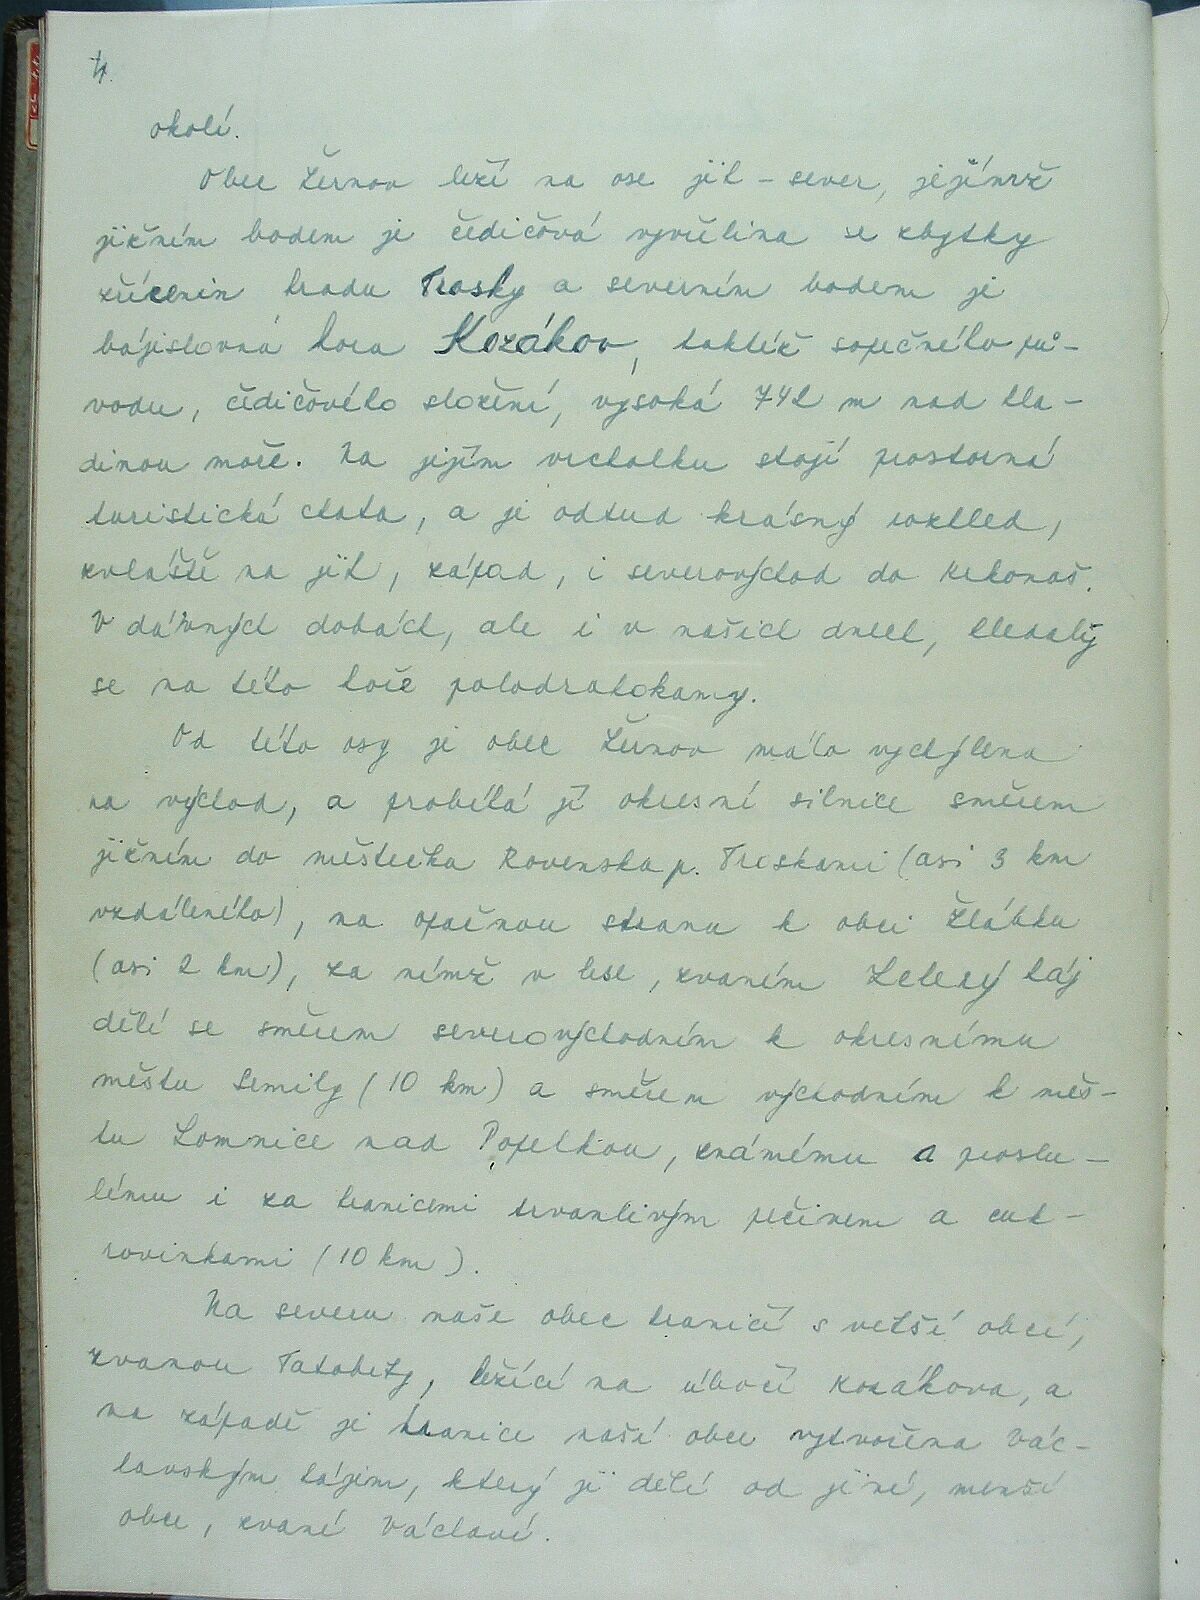 4.
okolí.
Obec Žernov leží na ose jih – sever, jejímž
jižním bodem je čedičová vyvřelina se zbytky
zřícenin hradu Trosky a severním bodem je
bájislovná hora Kozákov, taktéž sopečného pů-
vodu, čedičového složení, vysoká 742 m nad hla-
dinou moře. Na jejím vrcholku stojí prostorná
turistická chata, a je odtud krásný rozhled,
zvláště na jih, západ, i severovýchod do Krkonoš.
V dávných dobách, ale i v našich dnech, hledaly
se na této hoře polodrahokamy.
Od této osy je obec Žernov málo vychýlena
na východ, a probíhá jí okresní silnice směrem
jižním do městečka Rovenska p. Troskami (asi 3 km
vzdáleného), na opačnou stranu k obci Žlábku
(asi 2 km), za nímž v lese, zvaném Zelený háj
dělí se směrem severovýchodním k okresnímu
městu Semily (10 km) a směrem východním k měs-
tu Lomnice nad Popelkou, známému a proslu-
lému i za hranicemi trvanlivým pečivem a cuk-
rovinkami (10 km).
Na severu naše obec hraničí s větší obcí,
zvanou Tatobity, ležící na úbočí Kozákova, a
na západě je hranice naší obce vytvořena Vác-
lavským hájem, který ji dělí od jiné, menší
obce, zvané Václaví.